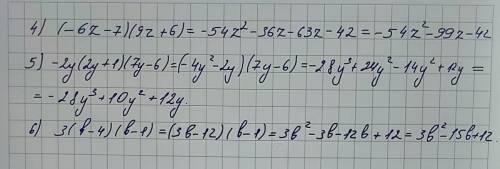 4) (-6z-7)(9z+6)=-54z²-36z-63z-42=-54z²-99z-42
5) -2y(2y+1)(7y-6)=(-4y²-2y)(7y-6)=-28y³+24y²-14y²+12y=
=-28y³+10y²+12y.
6) 3(b-4)(b-1)=(3b-12)(b-1)=3b²-3b-12b+12=3b²-15b+12.